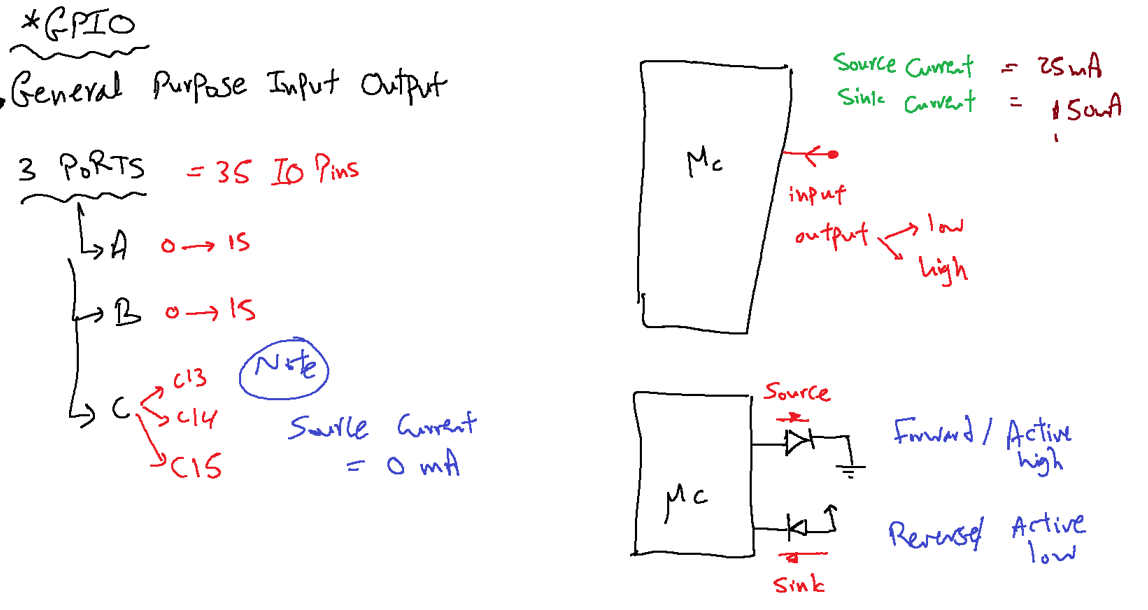 *GPIO
General Purpose Input Output
3 PORTS = 35 IO Pins
A 0 → 15
B 0 → 15
C
C13
C14
C15
Note
Source Current
= 0 mA
Source Current = 25mA
Sink Current = 150mA
μc
input
output
low
high
Source
Forward / Active
high
μc
Reverse/ Active
low
Sink